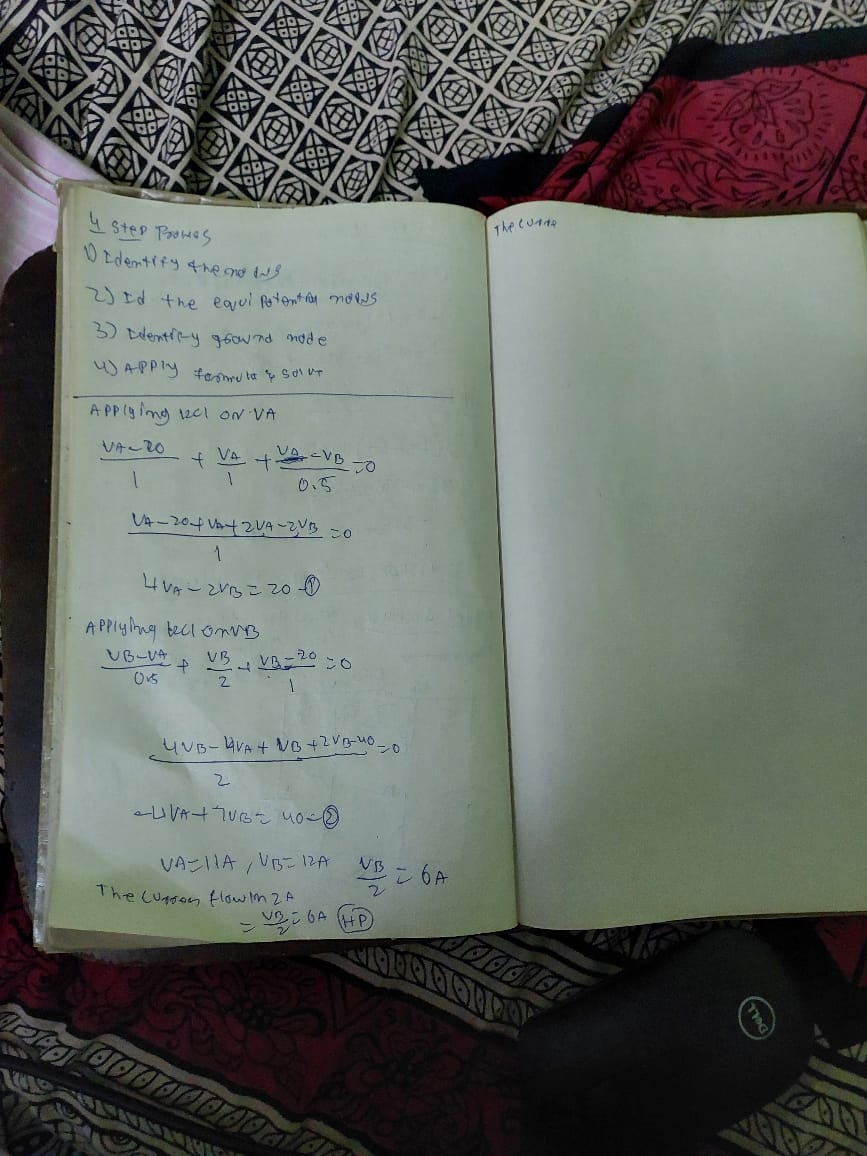 4 Step Process
1) Identify the nodes
2) Id the equi potential nodes
3) Identify ground node
4) APPly formula & solve
APPlying kcl ON VA
VA-20/1 + VA/1 + VA-VB/0.5 =0
VA-20+VA+2VA-2VB/1 =0
4VA-2VB=20-①
APPlying kcl on VB
VB-VA/0.5 + VB/2 + VB-20/1 =0
4VB-4VA+VB+2VB-40/2 =0
-4VA+7VB=40-②
VA=11A, VB=12A VB/2 = 6A
The flow in 2A
= VB/2 = 6A (HP)
The curre
DELL